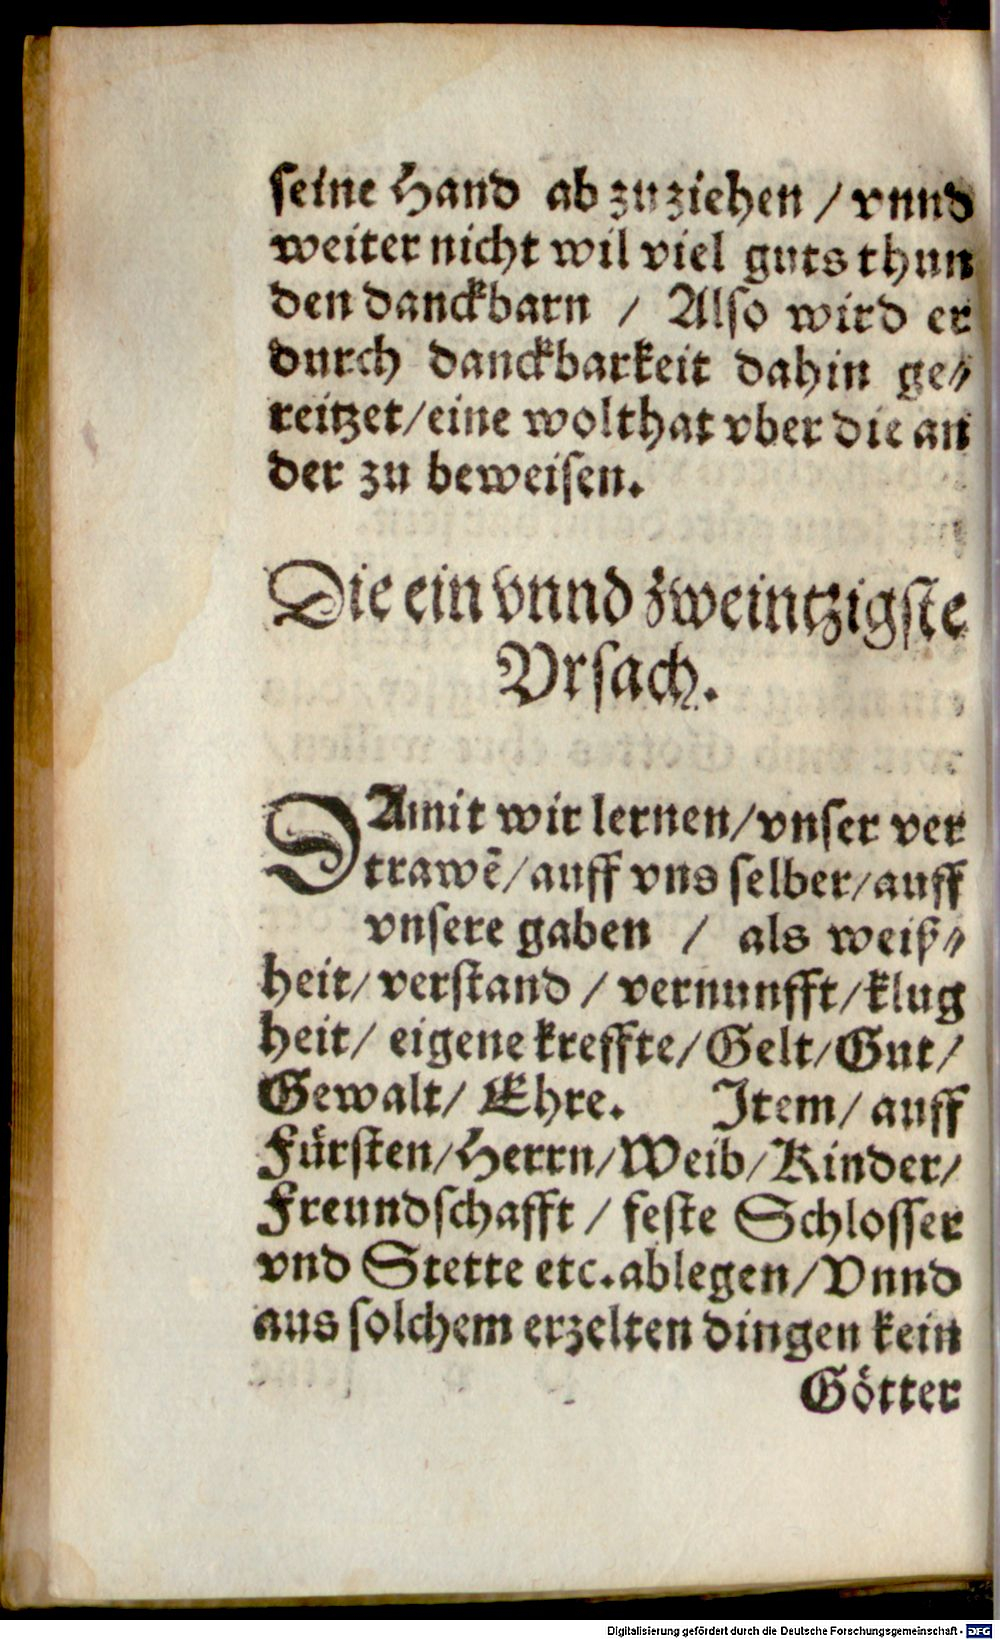 seine Hand ab zu ziehen / vnnd
weiter nicht wil viel guts thun
den danckbarn / Also wird er
durch danckbarkeit dahin ge⸗
reitzet/eine wolthat vber die an
der zu beweisen.
Die ein vnnd zweintzigste
Vrsach.
DAmit wir lernen/vnser ver
trawẽ/auff vns selber/auff
vnsere gaben / als weiß⸗
heit/verstand / vernunfft/klug
heit/ eigene kreffte/Gelt/Gut/
Gewalt/ Ehre. Item/ auff
Fürsten/Herrn/Weib/Kinder/
Freundschafft / feste Schlosser
vnd Stette etc.ablegen/Vnnd
aus solchem erzelten dingen kein
Götter
Digitalisierung gefördert durch die Deutsche Forschungsgemeinschaft - DFG